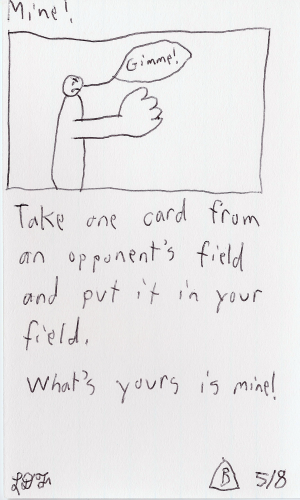 Mine!
Gimme!
Take one card from
an opponent's field
and put it in your
field.
What's yours is mine!
B 5/8